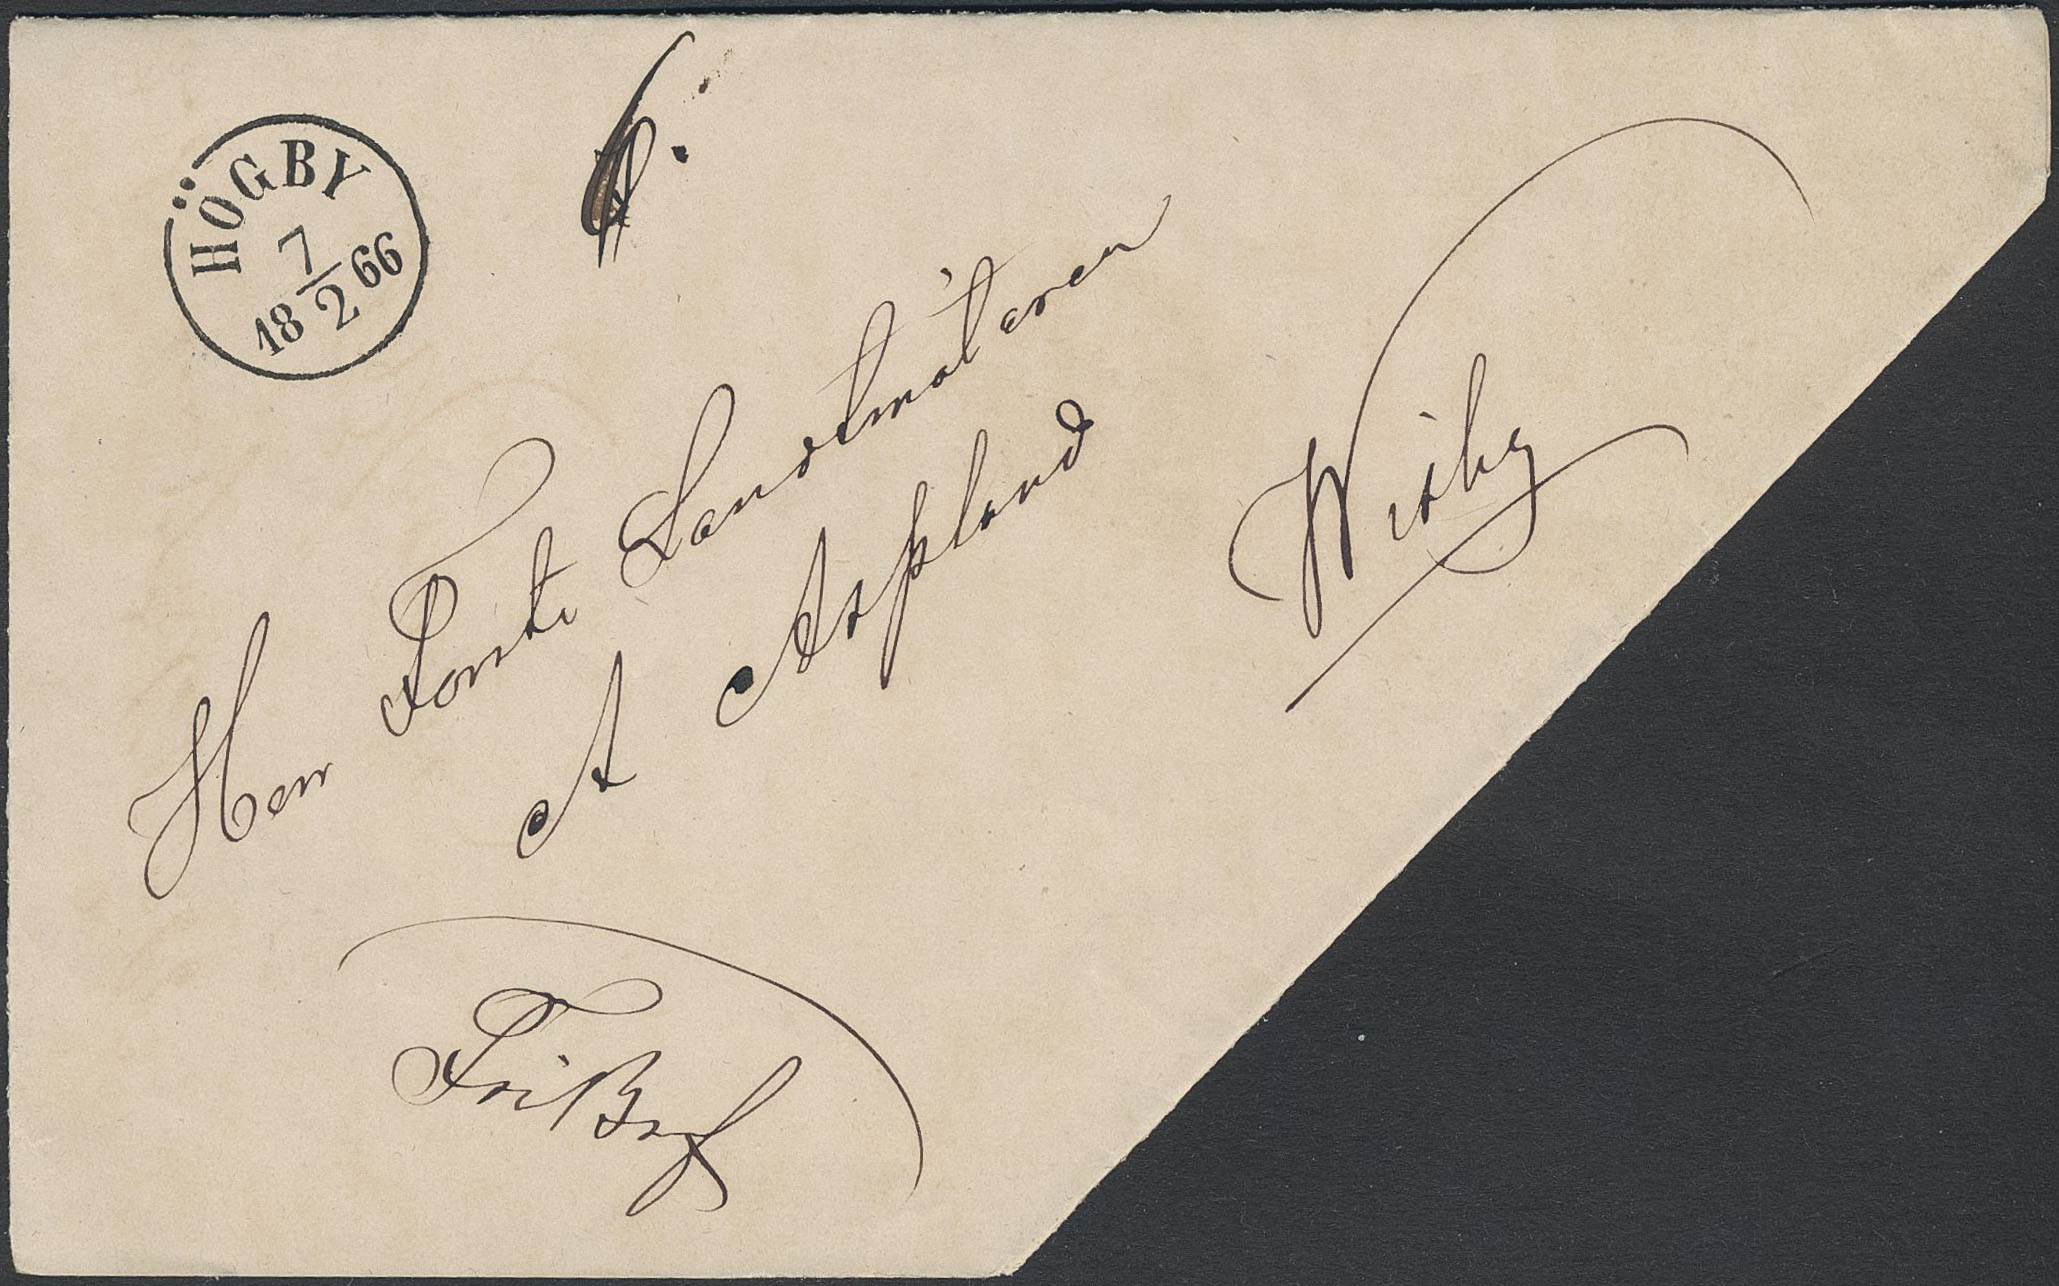 HÖGBY
7
18 2 66
6.
Herr Förste Landtmätaren
A Aspland
Wisby
Fri Bref